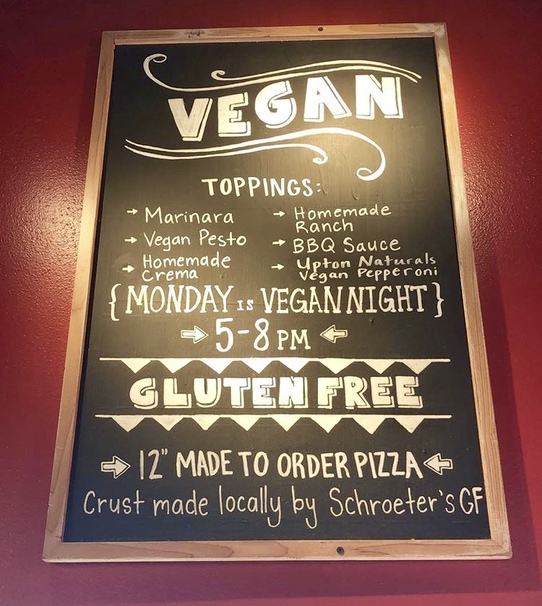 VEGAN
TOPPINGS:
→ Marinara
→ Vegan Pesto
→ Homemade
Crema
→ Homemade
Ranch
→ BBQ Sauce
→ Upton Naturals
Vegan Pepperoni
{ MONDAY IS VEGAN NIGHT }
5-8 PM
GLUTEN FREE
12" MADE TO ORDER PIZZA
Crust made locally by Schroeter's GF